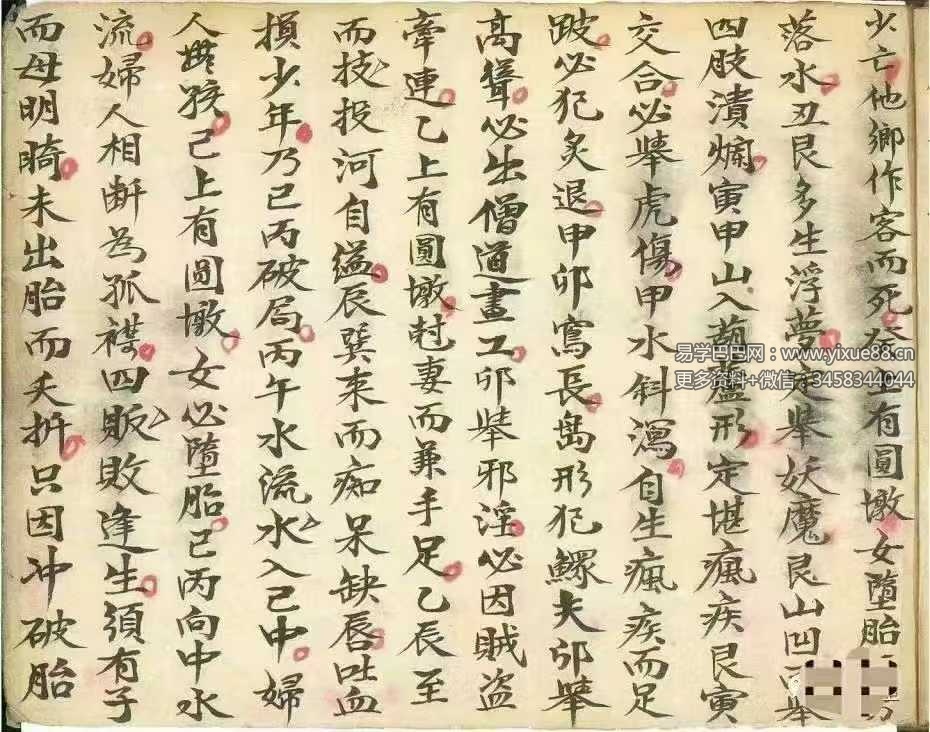 少亡他鄉作客而死癸上有圓墩女墮胎
落水丑艮多生浮夢定犖妖魔艮山凹
四肢潰爛寅甲山入葫蘆形定堪瘋疾艮寅
交合必犖虎傷甲水斜瀉自生瘋疾而足
跛必犯炙退甲卯寫長島形犯鰥夫卯犖
高聳必出僧道畫工卯犖邪淫必因賊盜
牽連乙上有圓墩尅妻而兼手足乙辰至
而技投河自縊辰巽来而痴呆缺唇吐血
損少年乃巳丙破局丙午水流水入己中婦
人無孩己上有圓墩女必墮胎巳丙向中水
流婦人相断為孤襟四販敗逢生須有子
而母明騎未出胎而夭折只因冲破胎
易学巴巴网：www.yixue88.cn
更多资料+微信：3458344044